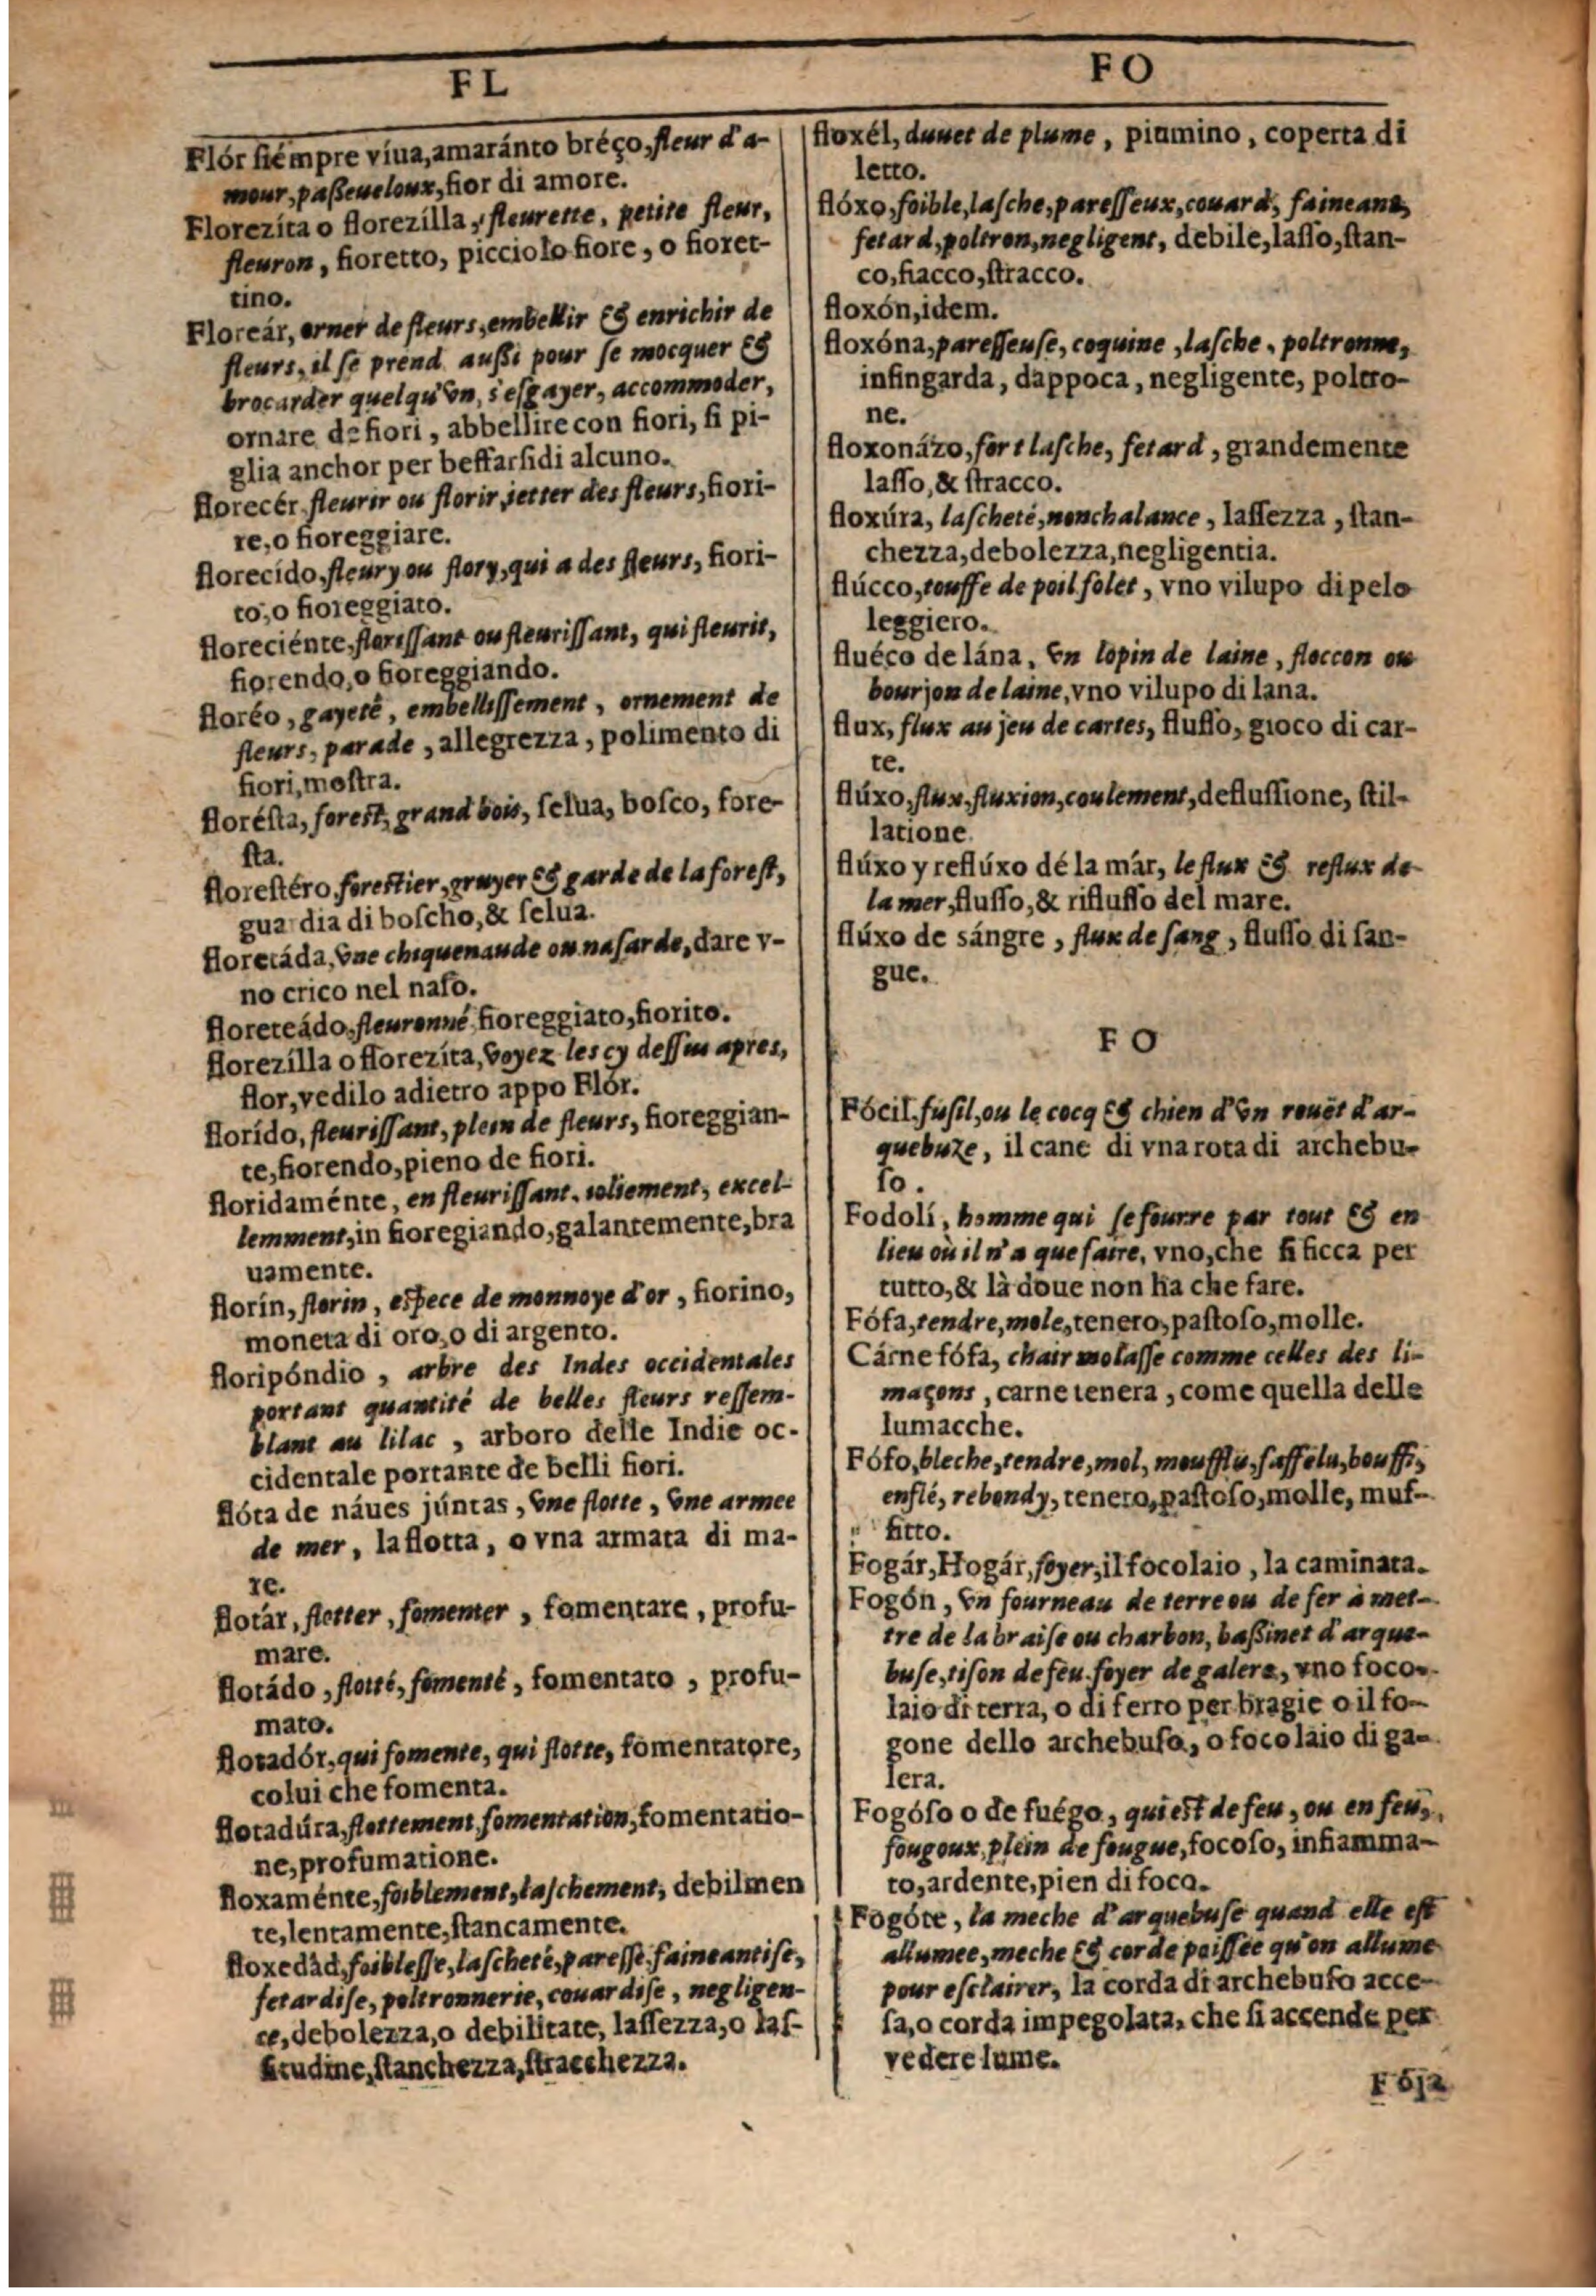 FL
Flór siémpre víua, amaránto bréço, fleur d'a-
mour, passeueloux, fior di amore.
Florezíta o florezílla, fleurette, petite fleur,
fleuron, fioretto, picciolo fiore, o fioret-
tino.
Floreár, orner de fleurs, embellir & enrichir de
fleurs, il se prend aussi pour se mocquer &
brocarder quelqu'vn, s'esgayer, accommoder,
ornare de fiori, abbellire con fiori, si pi-
glia anchor per beffarsi di alcuno.
florecér, fleurir ou florir, jetter des fleurs, fiori-
re, o fioreggiare.
florecído, fleury ou flory, qui a des fleurs, fiori-
to, o fioreggiato.
floreciénte, florissant ou fleurissant, qui fleurit,
fiorendo, o fioreggiando.
floréo, gayeté, embellissement, ornement de
fleurs, parade, allegrezza, polimento di
fiori, mostra.
florésta, forest, grand bois, selua, bosco, fore-
sta.
florestéro, forestier, gruyer & garde de la forest,
guardia di boscho, & selua.
floretáda, vne chiquenaude ou nasarde, dare v-
no crico nel naso.
floreteádo, fleuronné, fioreggiato, fiorito.
florezílla o florezíta, voyez les cy dessus apres,
flor, vedilo adietro appo Flór.
florído, fleurissant, plein de fleurs, fioreggian-
te, fiorendo, pieno de fiori.
floridaménte, en fleurissant, ioliement, excel-
lemment, in fioregiando, galantemente, bra
uamente.
florín, florin, espece de monnoye d'or, fiorino,
moneta di oro, o di argento.
floripóndio, arbre des Indes occidentales
portant quantité de belles fleurs ressem-
blant au lilac, arboro delle Indie oc-
cidentale portante de belli fiori.
flóta de náues júntas, vne flotte, vne armee
de mer, la flotta, o vna armata di ma-
re.
flotár, flotter, fomenter, fomentare, profu-
mare.
flotádo, flotté, fomenté, fomentato, profu-
mato.
flotadór, qui fomente, qui flotte, fomentatore,
colui che fomenta.
flotadúra, flottement, fomentation, fomentatio-
ne, profumatione.
floxaménte, foiblement, laschement, debilmen
te, lentamente, stancamente.
floxedàd, foiblesse, lascheté, paresse, faineantise,
fetardise, poltronnerie, couardise, negligen-
ce, debolezza, o debilitate, lassezza, o las-
situdine, stanchezza, stracchezza.
FO
floxél, duuet de plume, piumino, coperta di
letto.
flóxo, foible, lasche, paresseux, couard, faineant,
fetard, poltron, negligent, debile, lasso, stan-
co, fiacco, stracco.
floxón, idem.
floxóna, paresseuse, coquine, lasche, poltronne,
infingarda, dappoca, negligente, poltro-
ne.
floxonázo, fort lasche, fetard, grandemente
lasso, & stracco.
floxúra, lascheté, nonchalance, lassezza, stan-
chezza, debolezza, negligentia.
flúcco, touffe de poil folet, vno vilupo di pelo
leggiero.
fluéco de lána, vn lopin de laine, floccon ou
bourjon de laine, vno vilupo di lana.
flux, flux au jeu de cartes, flusso, gioco di car-
te.
flúxo, flux, fluxion, coulement, deflussione, stil-
latione.
flúxo y reflúxo dé la már, le flux & reflux de
la mer, flusso, & riflusso del mare.
flúxo de sángre, flux de sang, flusso di san-
gue.
FO
Fócil, fusil, ou le cocq & chien d'vn rouët d'ar-
quebuze, il cane di vna rota di archebu-
so.
Fodolí, homme qui se fourre par tout & en
lieu où il n'a que faire, vno, che si ficca per
tutto, & là doue non ha che fare.
Fófa, tendre, mole, tenero, pastoso, molle.
Cárne fófa, chair molasse comme celles des li-
maçons, carne tenera, come quella delle
lumacche.
Fófo, bleche, tendre, mol, moufflu, saffelu, bouffi,
enflé, rebondy, tenero, pastoso, molle, muf-
fitto.
Fogár, Hogár, foyer, il focolaio, la caminata.
Fogón, vn fourneau de terre ou de fer à met-
tre de la braise ou charbon, bassinet d'arque-
buse, tison de feu, foyer de galere, vno foco-
laio di terra, o di ferro per bragie o il fo-
gone dello archebuso, o focolaio di ga-
lera.
Fogóso o de fuégo, qui est de feu, ou en feu,
fougoux, plein de fougue, focoso, infiamma-
to, ardente, pien di foco.
Fogóte, la meche d'arquebuse quand elle est
allumee, meche & corde poissée qu'on allume
pour esclairer, la corda di archebuso acce-
sa, o corda impegolata, che si accende per
vedere lume.